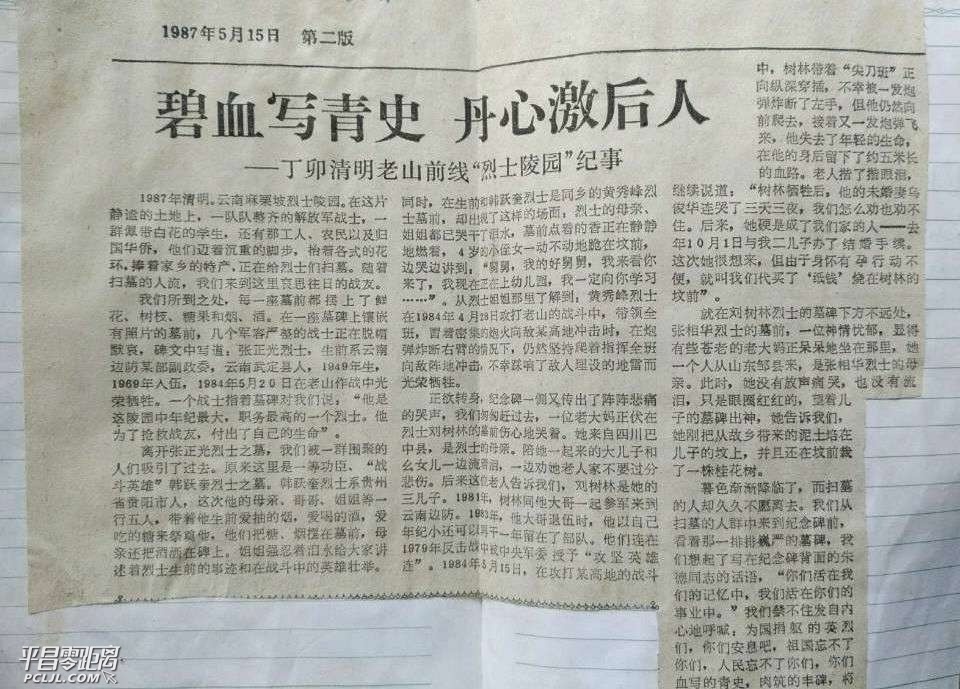 1987年5月15日 第二版
碧血写青史 丹心激后人
——丁卯清明老山前线“烈士陵园”纪事
1987年清明。云南麻栗坡烈士陵园。在这片
静谧的土地上，一队队整齐的解放军战士，一
群群带白花的学生，还有那工人、农民以及归
国华侨，他们迈着沉重的步伐，抬着各式的花
环，捧着家乡的特产，正在给烈士们扫墓。随着
扫墓的人流，我们来到这里哀思往日的战友。
我们所到之处，每一座墓前都摆上了鲜
花、树枝、糖果和烟、酒。在一座墓碑上镶嵌
有照片的墓前，几个军容严整的战士正在脱帽
默哀，碑文中写道：张正光烈士，生前系云南
边防某部副政委，云南武定县人，1949年生，
1969年入伍，1984年5月20日在老山作战中光
荣牺牲。一个战士指着墓碑对我们说：“他是
这陵园中年纪最大，职务最高的一个烈士。他
为了抢救战友，付出了自己的生命”。
离开张正光烈士之墓，我们被一群围聚的
人们吸引了过去。原来这里是一等功臣、“战
斗英雄”韩跃奎烈士之墓。韩跃奎烈士系贵州
省贵阳市人，这次他的母亲、哥哥、姐姐等一
行五人，带着他生前爱抽的烟，爱喝的酒，爱
吃的糖来祭奠他，他们把糖、烟摆在墓前，母
亲还把酒洒在碑上。姐姐强忍着泪水给大家讲
述着烈士生前的事迹和在战斗中的英雄壮举。
同时，在生前和韩跃奎烈士是同乡的黄秀峰烈
士墓前，却出现了这样的场面，烈士的母亲、
姐姐都已哭干了泪水，墓前点着的香正在静静
地燃着，4岁的小侄女一动不动地跪在坟前，
边哭边讲到，“舅舅，我的好舅舅，我来看你
来了，我现在正在上幼儿园，我一定向你学习
……”。从烈士姐姐那里了解到：黄秀峰烈士
在1984年4月28日攻打老山的战斗中，带领全
班，冒着密集的炮火向敌某高地冲击时，在炮
弹炸断右臂的情况下，仍然坚持爬着指挥全班
向敌阵地冲击，不幸踩响了敌人埋设的地雷而
光荣牺牲。
正欲转身，纪念碑一侧又传出了阵阵悲痛
的哭声，我们匆匆赶过去，一位老大妈正伏在
烈士刘树林的墓前伤心地哭着。她来自四川巴
中县，是烈士的母亲。陪她一起来的大儿子和
幺女儿一边流着泪，一边劝她老人家不要过分
悲伤。后来这位老人告诉我们，刘树林是她的
三儿子。1981年，树林同他大哥一起参军来到
云南边防。1983年，他大哥退伍时，他以自己
年纪小还可以再干一年留在了部队。他们连在
1979年反击战中被中央军委授予“攻坚英雄
连”。1984年5月15日，在攻打某高地的战斗
中，树林带着“尖刀班”正
向纵深穿插，不幸被一发炮
弹炸断了左手，但他仍然向
前爬去，接着又一发炮弹飞
来，他失去了年轻的生命，
在他的身后留下了约五米长
的血路。老人揩了揩眼泪，
继续说道：“树林牺牲后，他的未婚妻乌
俊华连哭了三天三夜，我们怎么劝也劝不
住。后来，她硬是成了我们家的人——去
年10月1日与我二儿子办了结婚手续。
这次她很想来，但由于身怀有孕行动不
便，就叫我们代买了‘纸钱’烧在树林的
坟前”。
就在刘树林烈士的墓碑下方不远处，
张相华烈士的墓前，一位神情忧郁，显得
有些苍老的老大妈正呆呆地坐在那里，她
一个人从山东邹县来，是张相华烈士的母
亲。此时，她没有放声痛哭，也没有流
泪，只是眼圈红红的，望着儿
子的墓碑出神，她告诉我们，
她刚把从故乡带来的泥土培在
儿子的坟上，并且还在坟前栽
了一株桂花树。
暮色渐渐降临了，而扫墓
的人却久久不愿离去。我们从
扫墓的人群中来到纪念碑前，
看着那一排排巍严的墓碑，我
们想起了写在纪念碑背面的朱
德同志的话语，“你们活在我
们的记忆中，我们活在你们的
事业中。”我们禁不住发自内
心地呼喊：为国捐躯的英烈
们，你们安息吧，祖国忘不了
你们，人民忘不了你们，你们
血写的青史，肉筑的丰碑，将
平昌零距离
PCLJL.COM